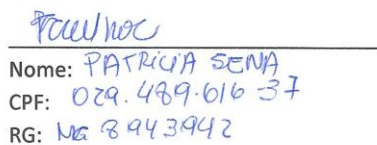 Nome: PATRICIA SENA
CPF: 029.489.616-37
RG: MG 8943942